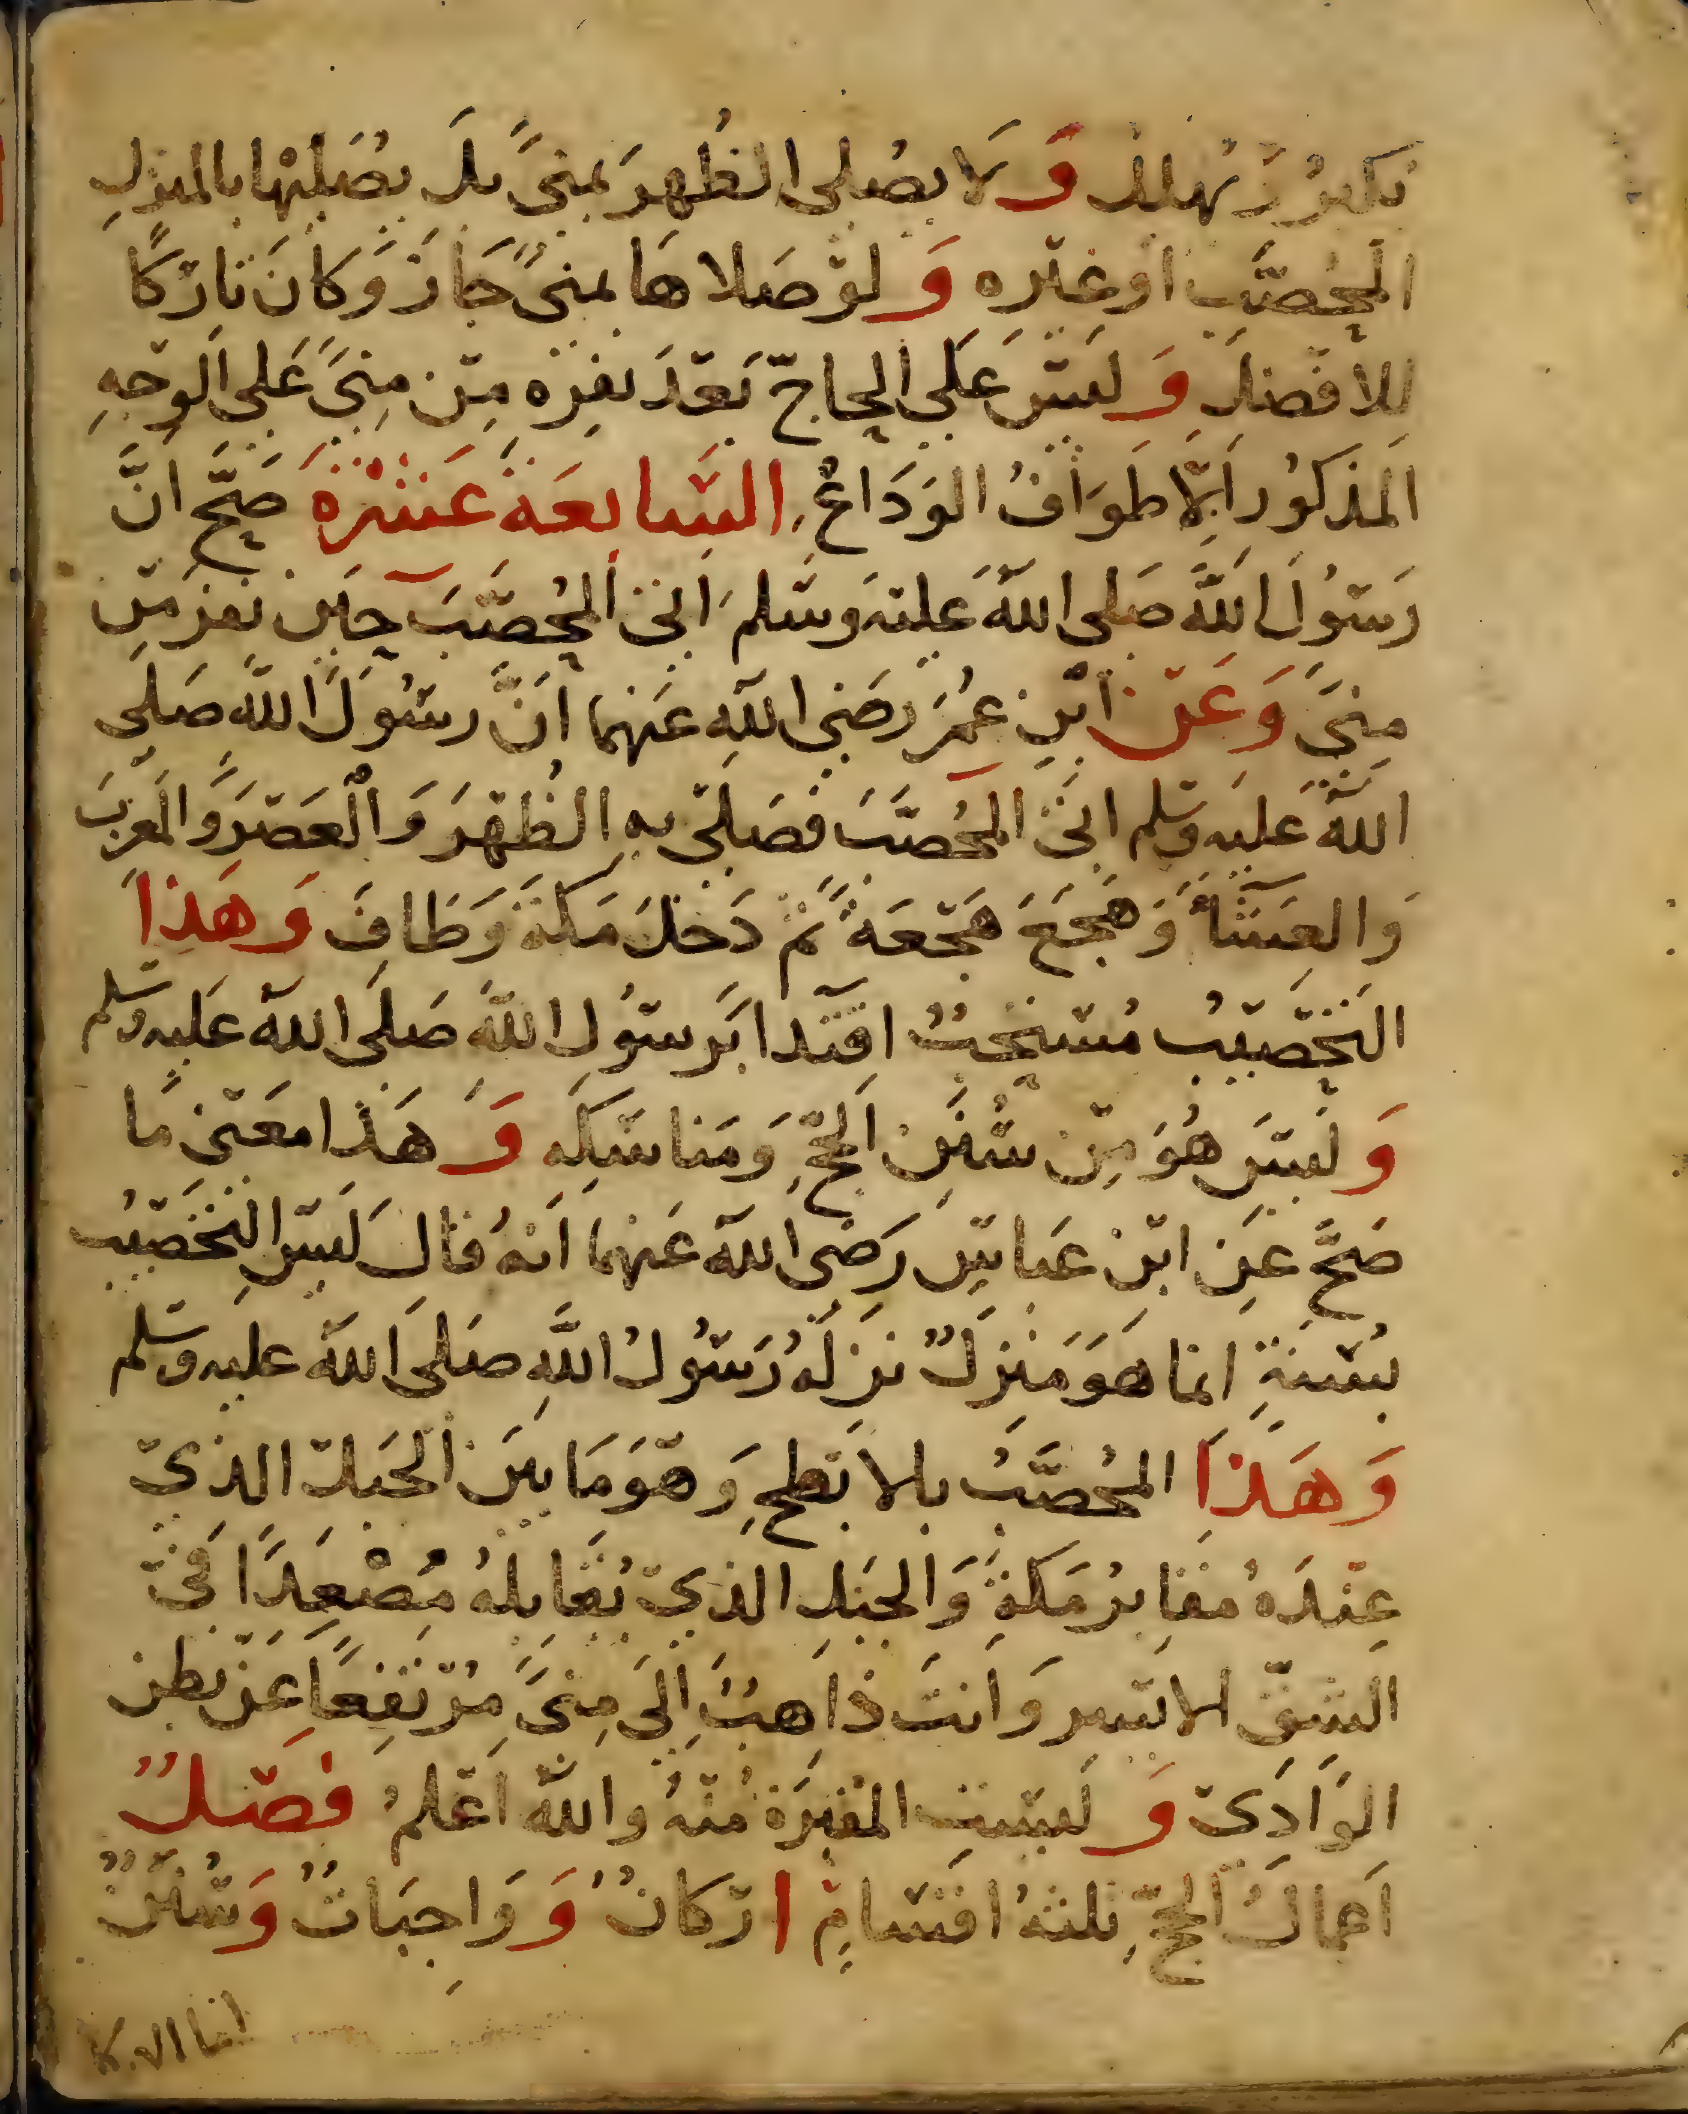 تكبيرٌ وتهليل وَلَا يصُلى الظُهرَ بمنىً بل يُصَليْها بالمنزلِ
المحُصَّبِ اوغيره وَلوْصَلاهَا بمنىً جَازَ وَكانَ تارِكًا
للافضلِ وَليْسَ عَلى الحاجّ بَعْدَ نفرِه مِنْ مِنىً عَلى الوجهِ
المذكوُر الّا طوَافُ الوَدَاعِ السَّابعَة عَشرَةَ صَحَّ انَّ
رَسُولَ اللهَ صَلى اللهُ عَليْه وَسَلم اتىَ المحُصَّبَ حِيْن نفر مِن
مِنىً وَعَن ابْنِ عُمرَ رضَى اللهِ عَنهما اَنَّ رسُوَلَ الله صَلى
اللهُ عَليه وسلم اتىَ المحُصَّبَ فصَلىْ بهِ الظُهْرَ وَالْعَصْرَ وَالمغربَ
وَالعِشَآءَ وَهجَعَ هَجْعَةً ثمَّ دَخلَ مَكةَ وَطَافَ وَهَذِا
التحْصيْبُ مُسْتحبٌ اقتدآ برَسوُلِ اللهِ صَلىَ اللهُ عَليه وسلم
وَليْسَ هُوَ مِنْ سُننِ الحَجِّ وَمَناسَكِهِ وَهَذا مَعْنىَ مَا
صَحَّ عَنِ ابْن عَباسٍ رَضىَ اللهُ عَنهمَا اَنهُ قالَ لَيسَ التحْصَيْبُ
بسُنةٍ انما هَوَ مَنزِلٌ نزلَهُ رَسُولُ اللهِ صَلىَ اللهُ عليه وسلم
وَهَذِاَ المحُصَّبُ بالابْطحِ وَهْوَ مَا بينَ الجَبلْ الذِىْ
عِنْدَهُ مقابرُ مَكةَ وَالجَبلِ الذِىْ يُقابلهُ مُصْعِدًا فىْ
الشقّ الايْسر وَانتَ ذاَهبٌ اِلىَ مِنىً مُرْتفِعًا عَنْ بطن
الوَادِىْ وَليْسَتِ المقبَرَة مُنهُ واللهُ اعْلمُ فصْلٌ
اَعمالُ الحَجِّ ثلثهُ اقسَامٍ ارْكانٌ وَوَاجِبَاتٌ وَسُننٌ
اما الا.كا